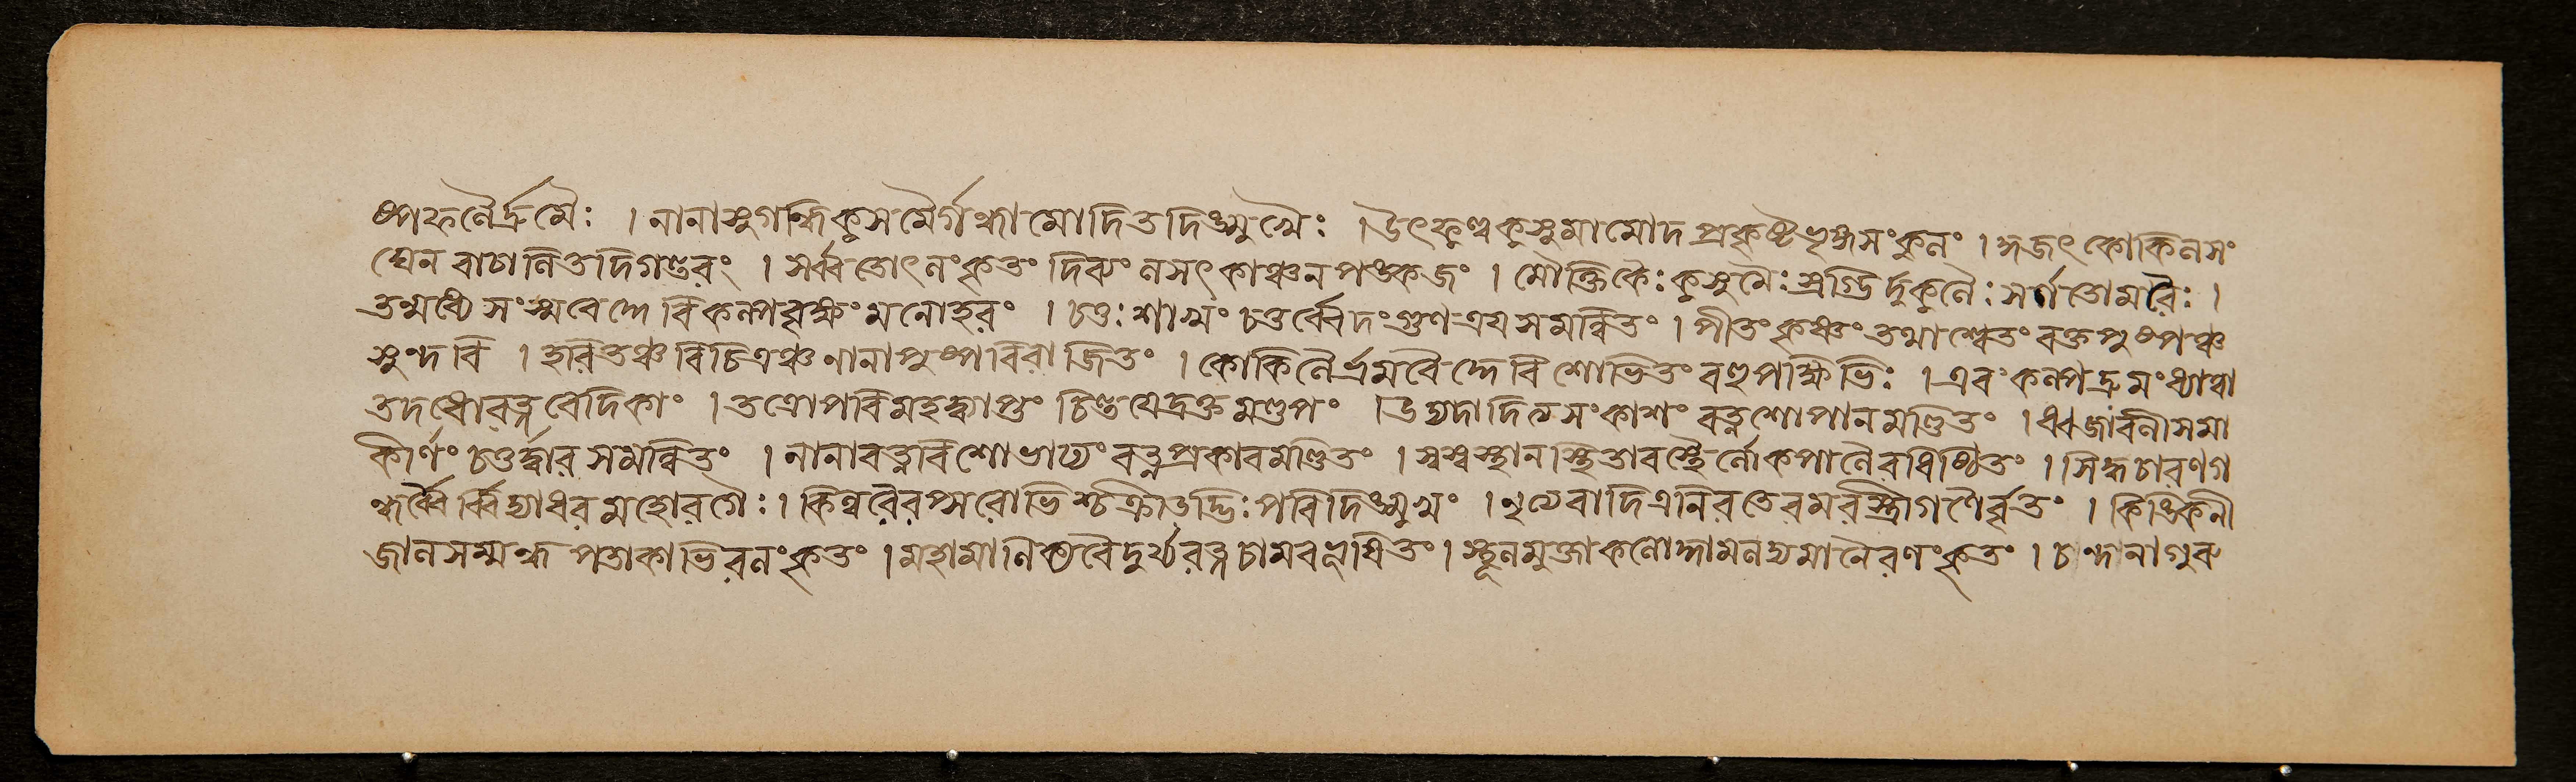 ষ্পফলৈর্দ্রুমৈঃ । নানাসুগন্ধিকুসমৈর্গন্ধামোদিতদিঙ্মুখৈঃ । উৎফুল্লকুসুমামোদপ্রকৃষ্টভৃঙ্গসংকুলং । কূজৎকোকিলসং
ঘেন বাচালিতদিগন্তরং । সর্ব্বতোৎলংকৃতং দিব্যং লসৎকাঞ্চনপঙ্কজং । মৌক্তিকৈঃ কুসুমৈঃ স্রগ্ভির্দুকুলৈঃ সর্ণতোমরৈঃ ।
তন্মধ্যে সংস্মরেদ্দেবি কল্পবৃক্ষং মনোহরং । চতুঃশাখং চতুর্ব্বেদং গুণত্রয়সমন্বিতং । পীতং কৃষ্ণং তথা শ্বেতং রক্তপুষ্পঞ্চ
সুন্দরি । হরিতঞ্চ বিচিত্রঞ্চ নানাপুষ্পবিরাজিতং । কোকিলৈর্ভ্রমরৈর্দ্দেবি শোভিতং বহুপক্ষিভিঃ । এবং কল্পদ্রুমং ধ্যাত্বা
তদধোরত্নবেদিকাং । তত্রোপরি মহদ্ব্যাপ্তং চিন্তয়েদ্রক্তমণ্ডপং । উদ্যদাদিত্যসংকাশং রত্নশোপানমণ্ডিতং । ধ্বজাবলীসমা
কীর্ণং চতুর্দ্বারসমন্বিতং । নানারত্নবিশোভাঢ্যং রত্নপ্রকারমণ্ডিতং । স্বস্বস্থানস্থিতাবস্থৈর্লোকপালৈরধিষ্ঠিতং । সিদ্ধচারণগ
ন্ধর্ব্বৈর্ব্বিদ্যাধরমহোরগৈঃ । কিন্নরৈরপ্সরোভিশ্চ ক্রীডদ্ভিঃ পরিদিঙ্মুখং । নৃত্যেবাদিত্রনিরতেরমরস্ত্রীগণৈর্বৃতং । কিঙ্কিনী
জালসম্মদ্ধপতাকাভিরলংকৃতং । মহামানিক্যবৈদুর্য্যরত্নচামরভূষিতং । স্থূলমুক্তাফলোদ্দামলম্বমানৈরলংকৃতং । চন্দনাগুরু